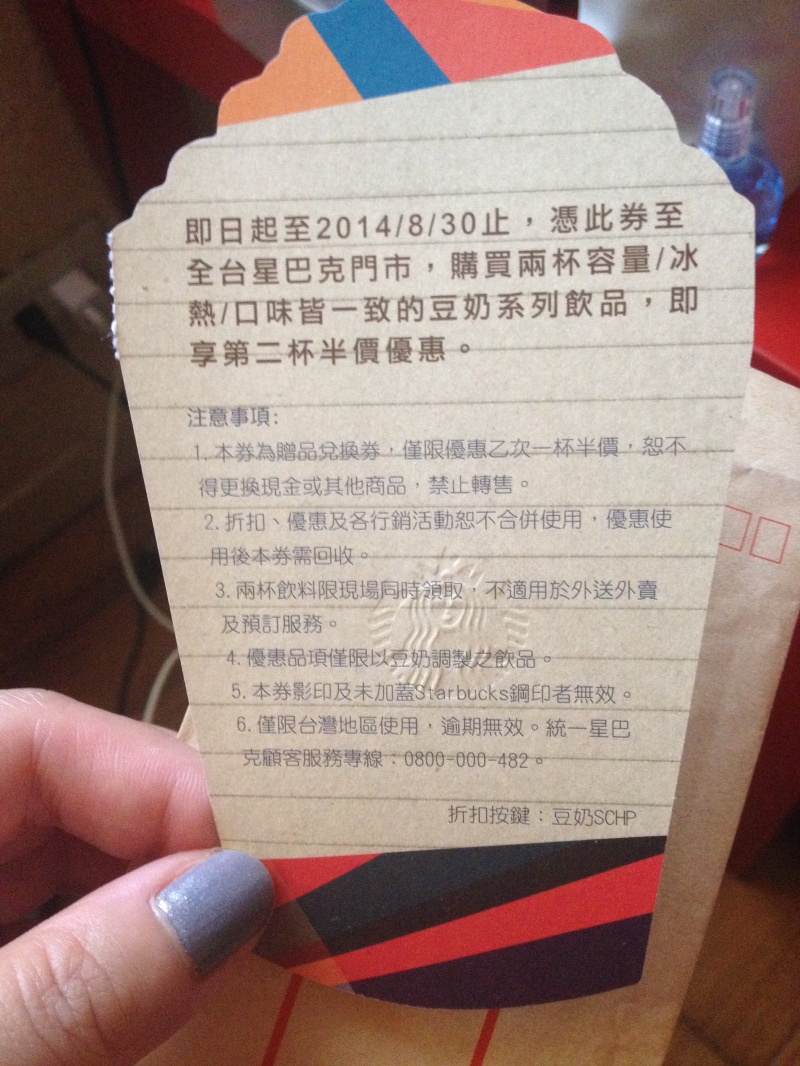 即日起至2014/8/30止，憑此券至
全台星巴克門市，購買兩杯容量/冰
熱/口味皆一致的豆奶系列飲品，即
享第二杯半價優惠。
注意事項:
1.本券為贈品兌換券，僅限優惠乙次一杯半價，恕不
得更換現金或其他商品，禁止轉售。
2.折扣、優惠及各行銷活動恕不合併使用，優惠使
用後本券需回收。
3.兩杯飲料限現場同時領取，不適用於外送外賣
及預訂服務。
4.優惠品項僅限以豆奶調製之飲品。
5.本券影印及未加蓋Starbucks鋼印者無效。
6.僅限台灣地區使用，逾期無效。統一星巴
克顧客服務專線：0800-000-482。
折扣按鍵：豆奶SCHP